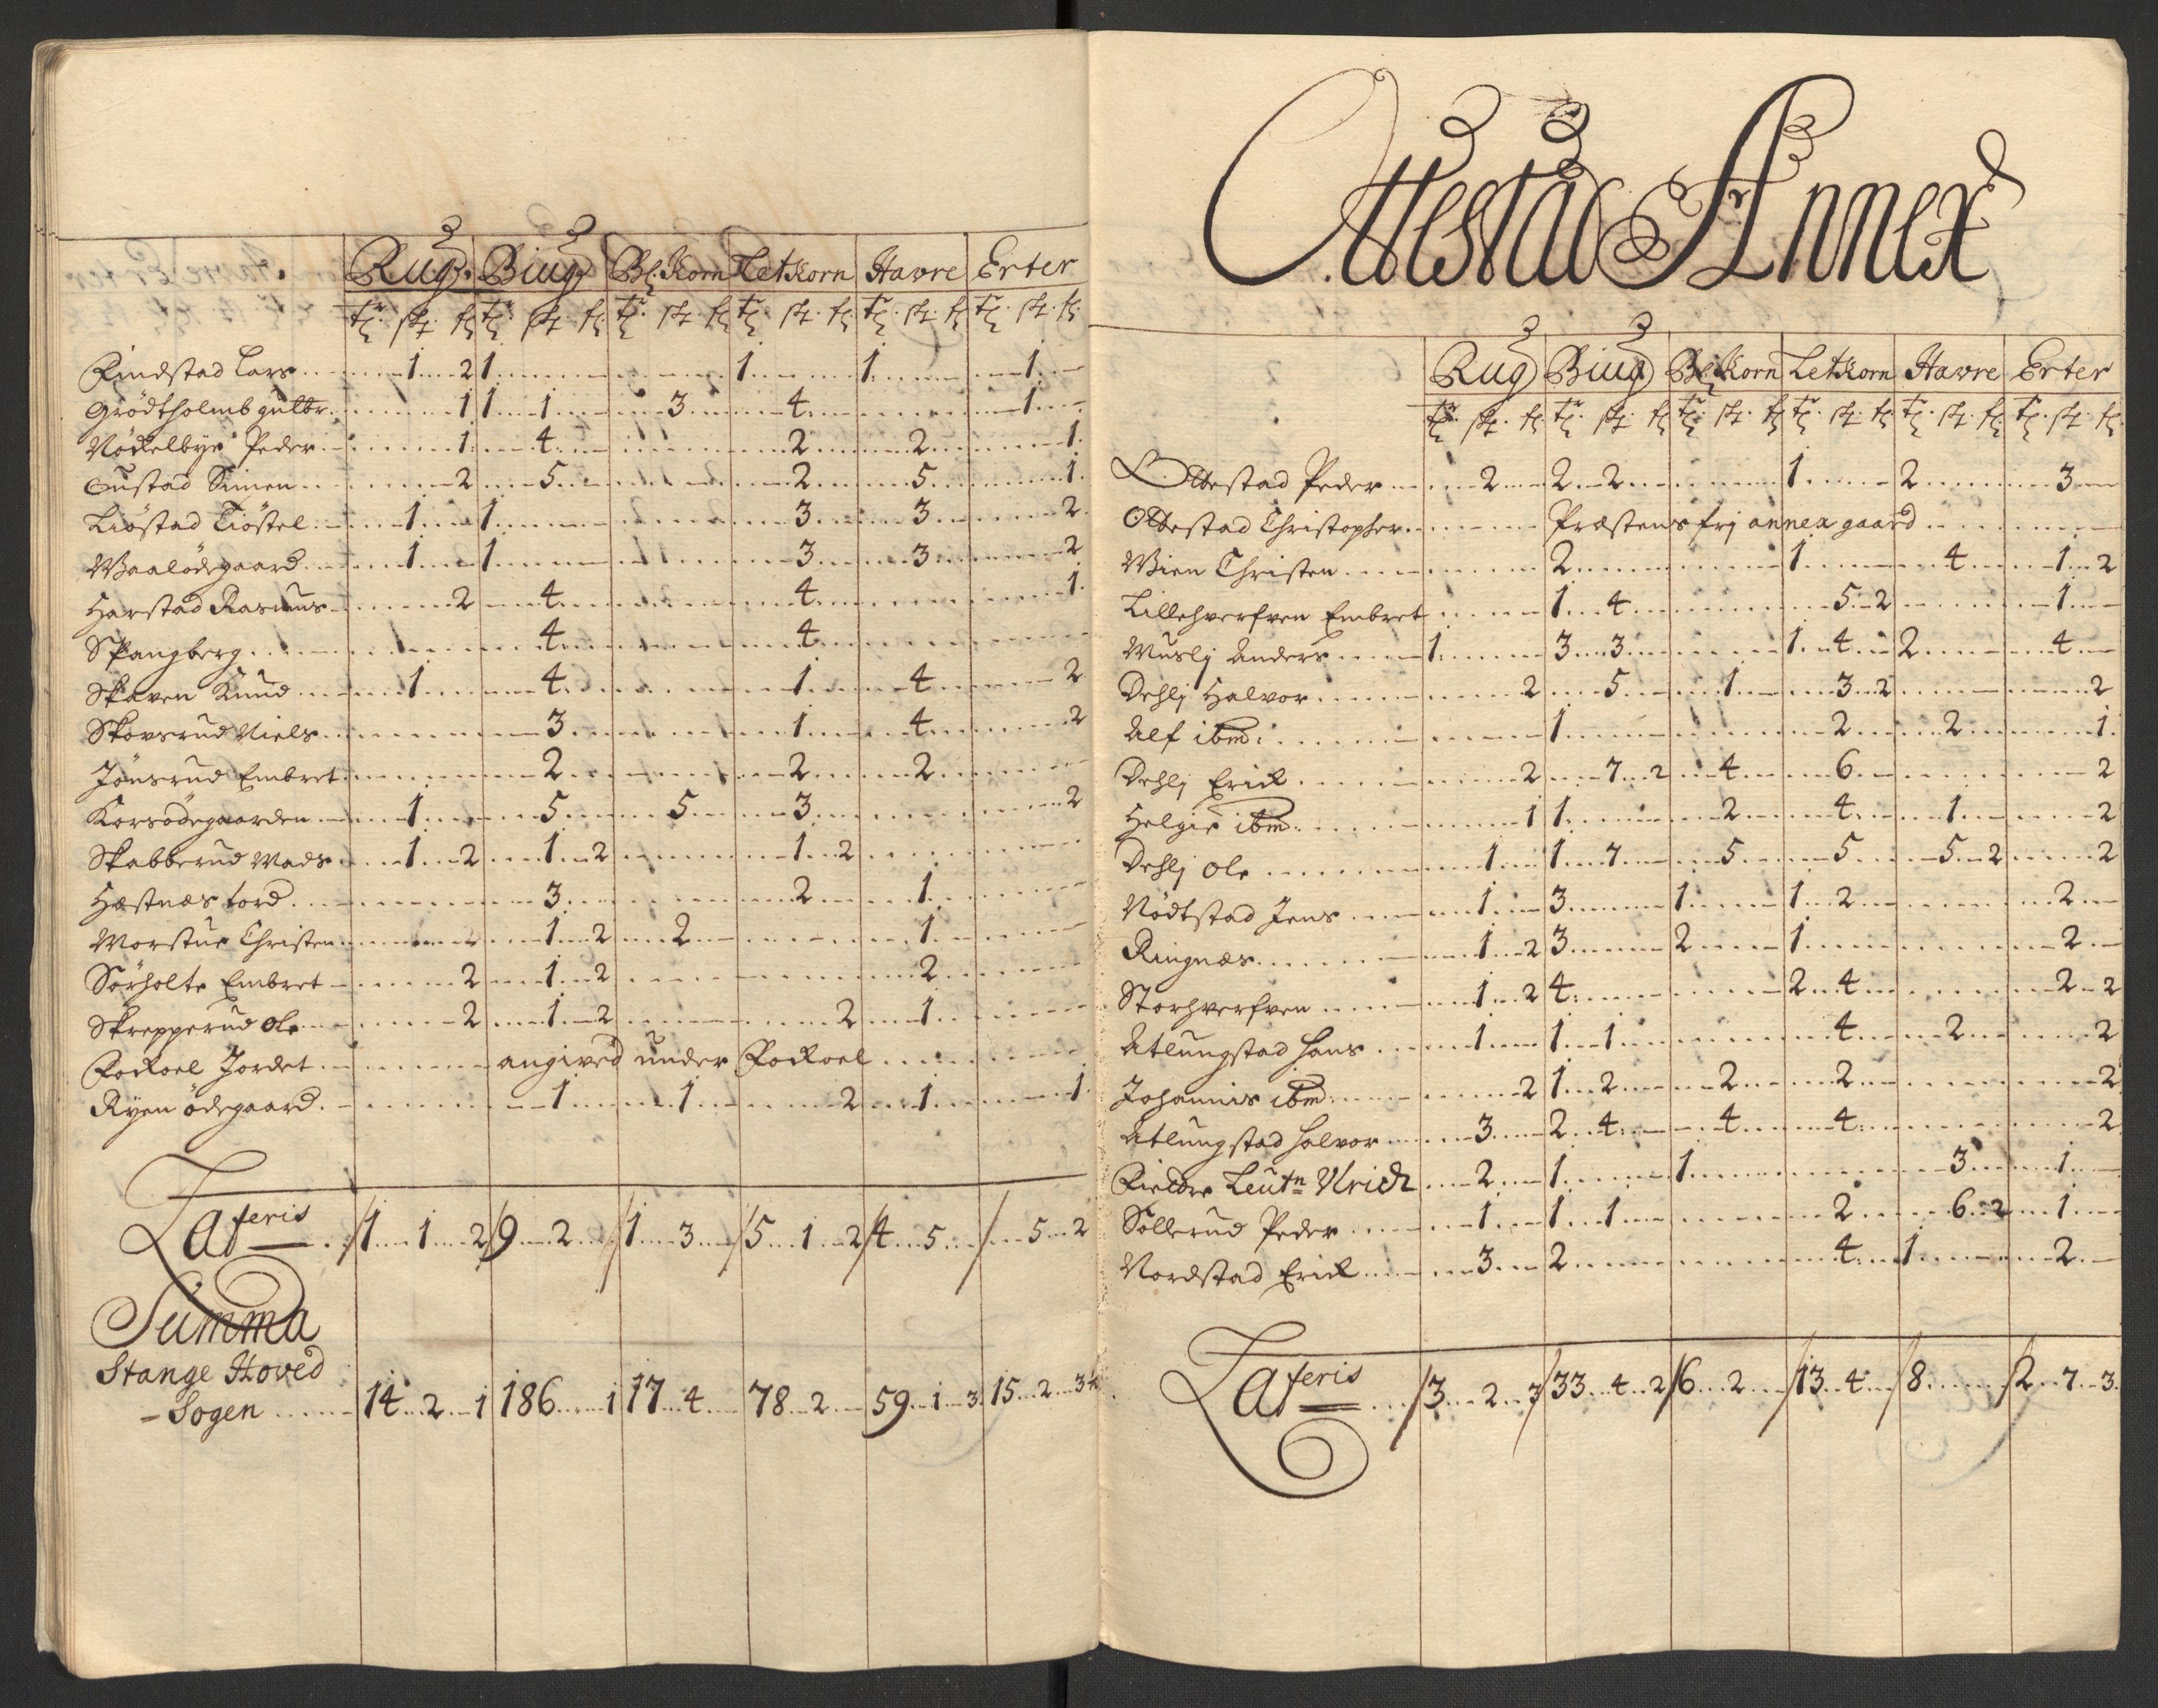 Rug Biug Bl. Korn Let Korn Havre Erter
Rindstad Lars 1 2 1 1 1 1
Grödtholmb gulbr. 1 1 1 3 4 1
Nökelbye Peder 1 4 2 2 1
Gustad Simen 2 5 2 5 1
Liöstad Tiöstel 1 1 3 3 2
Waalödegaard 1 1 3 3 2
Harstad Rasmus 2 4 4 1
Spangberg 4 4
Skaven Knud 1 4 1 4 2
Skovsrud Niels 3 1 4 2
Jönsrud Embret 2 2 2
Korsödegaarden 1 5 5 3 2
Skabberud Mads 1 2 1 2 1 2
Hæstnæs tord 3 2 1
Morstue Christen 1 2 2 1
Sörholte Embret 2 1 2 2
Skrepperud Ole 2 1 2 2 1
Rokoel Jordet angived under Rokoel
Ryen ödegaard 1 1 2 1 1
Lateris 1 1 2 9 2 1 3 5 1 2 4 5 5 2
Summa
Stange Hoved
Sogen 14 2 1 186 1 17 4 78 2 59 1 3 15 2 3
Ottestad Annex
Rug Biug Bl. Korn Let Korn Havre Erter
Ottestad Peder 2 2 2 1 2 3
Ottestad Christopher Præstens frj annex gaard
Wien Christen 2 1 4 1 2
Lillehverfven Embret 1 4 5 2 1
Muslj Anders 1 3 3 1 4 2 4
Dehlj Halvor 2 5 1 3 2 2
Alf ibm: 1 2 2 1
Dehlj Erick 2 7 2 4 6 2
Helgie ibm: 1 1 2 4 1 2
Dehlj Ole 1 1 7 5 5 5 2 2
Nödtstad Jens 1 3 1 1 2 2
Ringnæs 1 2 3 2 1 2
Storhverfven 1 2 4 2 4 2 2
Atlungstad Hans 1 1 1 4 2 2
Johannis ibm: 2 1 2 2 2 2
Atlungstad Halvor 3 2 4 4 4 2
Rieldre Leutn Ulrich 2 1 1 3 1
Sollerud Peder 1 1 1 2 6 2 1
Nordstad Erick 3 2 4 1 2
Lateris 3 2 3 33 4 2 6 2 13 4 8 2 7 3